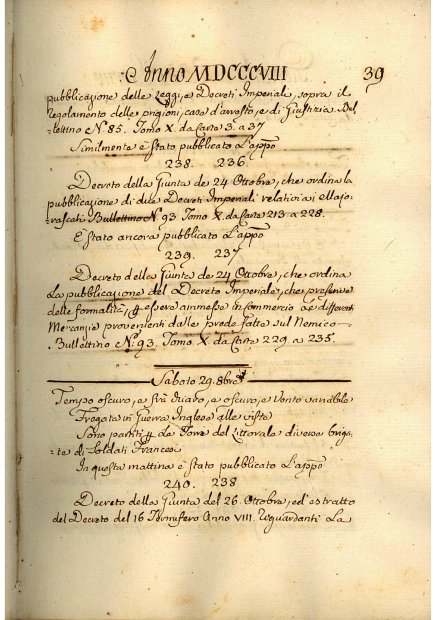 Anno MDCCCVIII 39
pubblicazione delle Leggi, e Decreti Imperiali, sopra il
Regolamento delle prigioni, case d'arresto, e di Giustizia Bul-
lettino N. 85. Tomo X. da Carte 3. a 37
Similmente è stato pubblicato L'appō
238. 236.
Decreto della Giunta de 24 Ottobre, che ordina la
pubblicazione di due Decreti Imperiali relativi ai
Bullettino N. 93 Tomo X. da Carte 213 a 228.
E stato ancora pubblicato L'appō
239. 237
Decreto della Giunta de 24 Ottobre, che ordina
La pubblicazione del Decreto Imperiale, che prescrive
delle formalità, essere ammesse in Commercio Le differenti
Mercanzie provenienti dalle prede fatte sul Nemico
Bullettino N. 93. Tomo X. da Carte 229 a 235.
Sabato 29. 8bre
Tempo oscuro, e frà chiaro, e oscuro, e Vento variabile
Fregata in Guerra Inglese alle viste
Sono partiti da Torre del Littorale diverse briga-
te di Soldati Francesi
In questa mattina è stato pubblicato L'appō
240. 238
Decreto della Giunta del 26. Ottobre, ed estratto
del Decreto del 16 Termifero Anno VIII. Risguardanti La